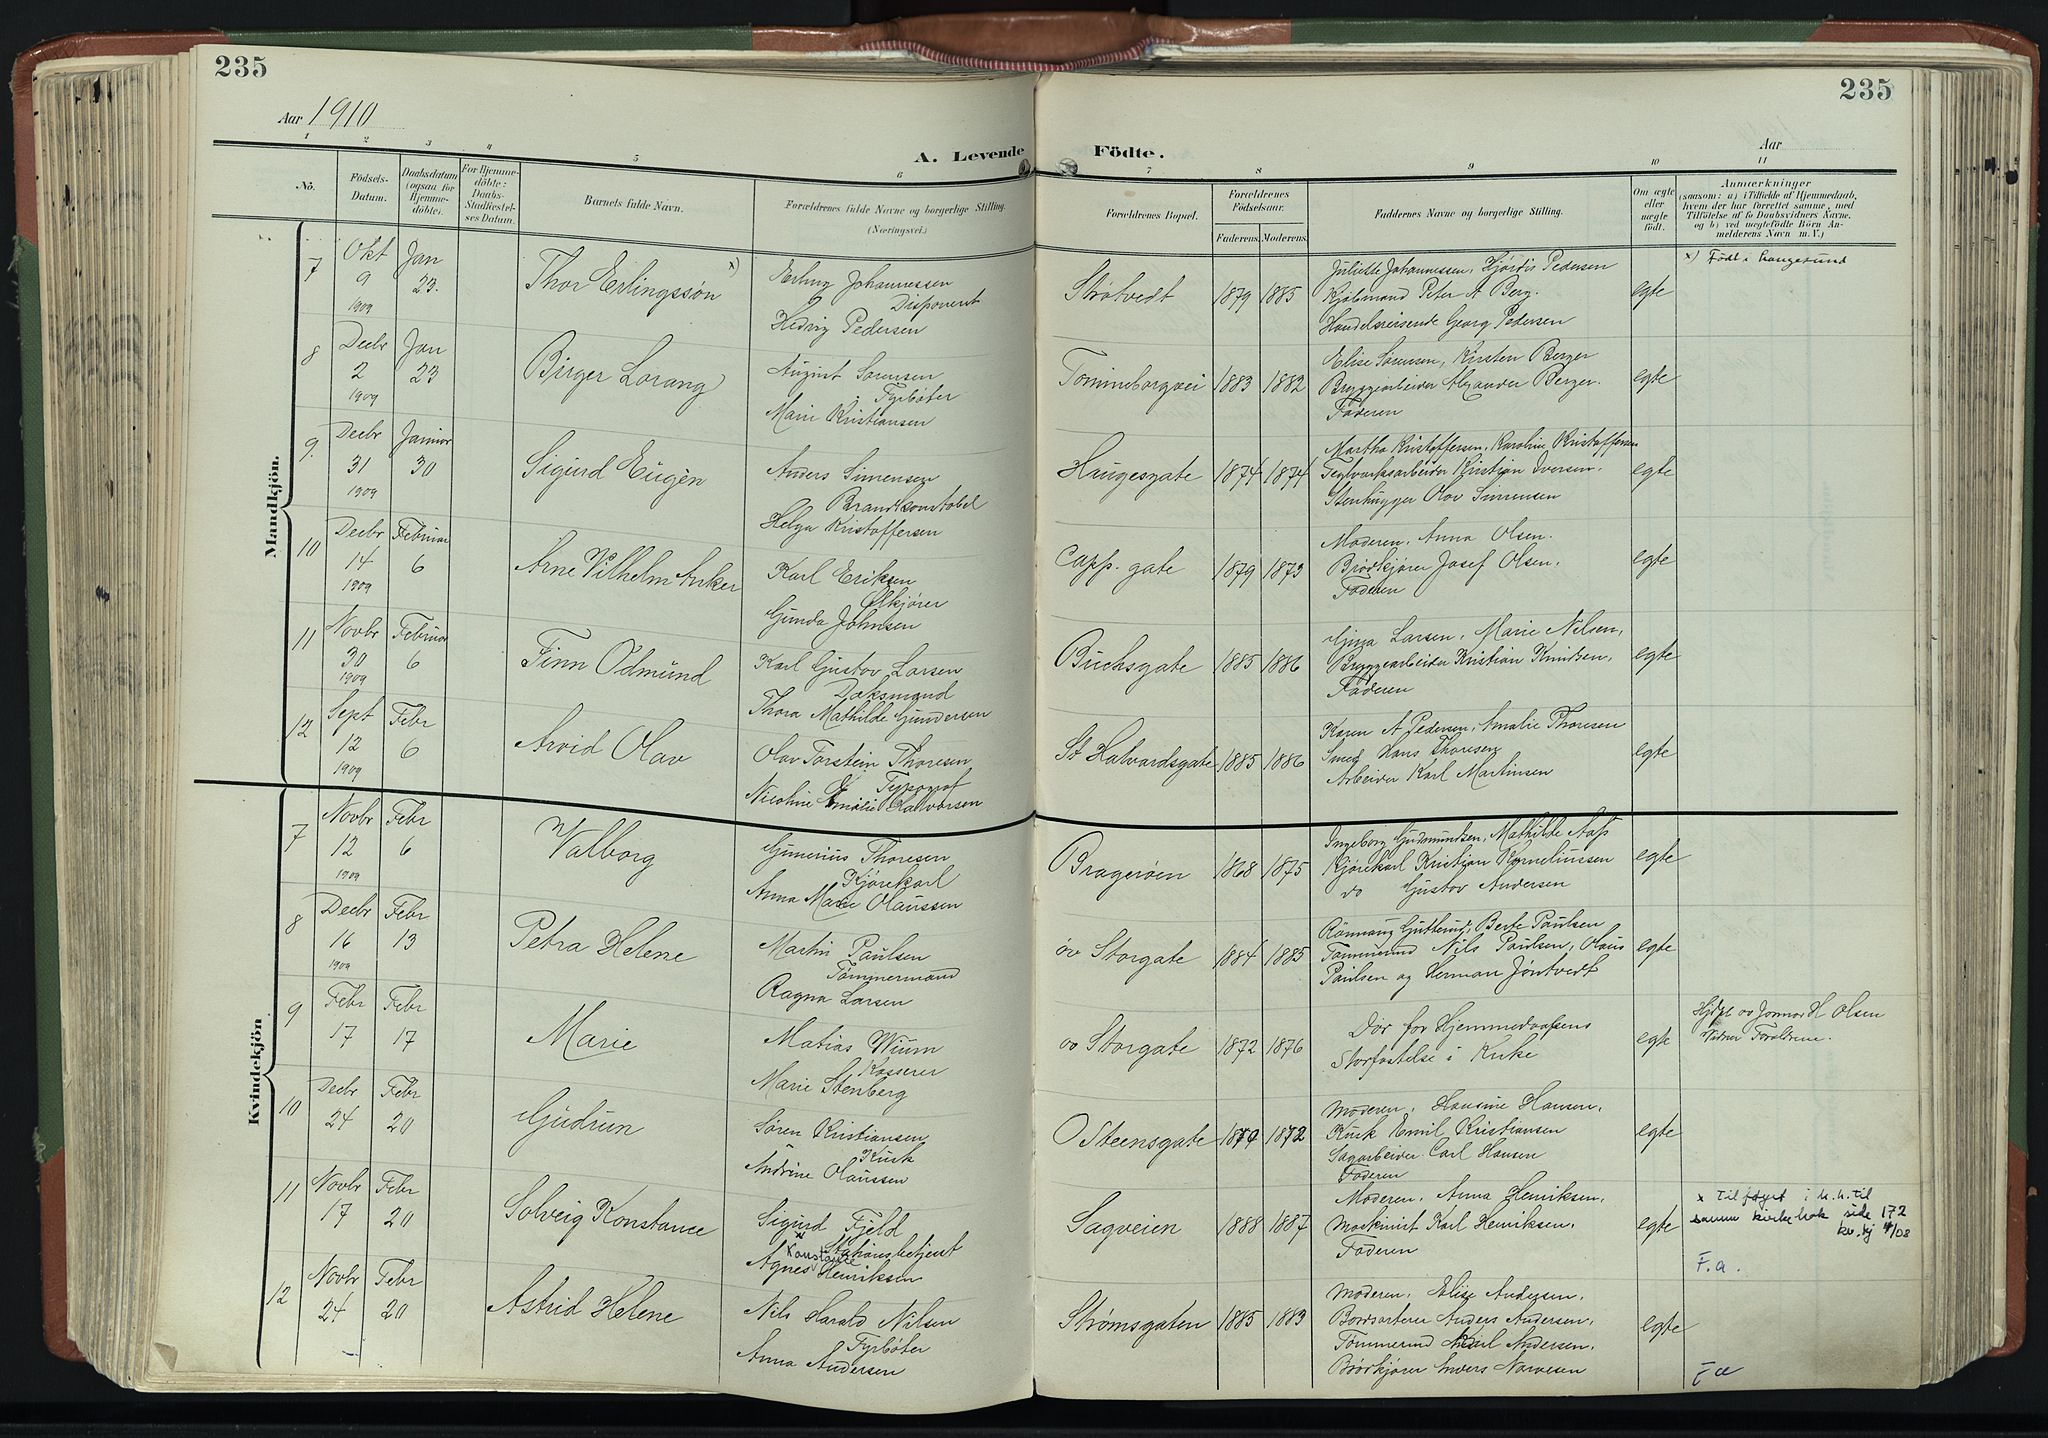 235
235
Aar 1910
Aar
A. Levende Födte.
1 2 3 4 5 6 7 8 9 10 11
No.
Födsels-Datum.
Daabsdatum (ogsaa for Hjemme-döbte).
For Hjemme-döbte: Daabs-Stadfæstel-ses Datum.
Barnets fulde Navn.
Forældrenes fulde Navne og borgerlige Stilling.
(Næringsvei.)
Forældrenes Bopæl.
Forældrenes Födselsaar.
Faderens. Moderens.
Faddernes Navne og borgerlige Stilling.
Om ægte eller uægte født.
Anmærkninger
(saasom: a) i Tilfælde af Hjemmedaab, hvem der har forrettet samme, med Tilföielse af to Daabsvidners Navne, og b) ved uægtefödte Börn Anmelderens Navn m. V.)
Mandkjön.
7 Okt 9 1909 Jan 23. Thor Erlingssön x)
Erling Johannessen
Disponent
Hedvig Pedersen
Strøtvedt 1879 1885
Juliette Johannessen, Hjørdis Pedersen
Kjøbmand Peter A Berg.
Handelsreisende Georg Pedersen
egte
x) Født i Langesund
8 Decbr 2 1909 Jan 23 Birger Lorang
August Sørensen
Fyrbøter
Marie Kristiansen
Tomineborgvei 1883 1882
Elise Sørensen, Kirsten Berger
Bryggearbeider Alexander Berger.
Faderen
egte
9. Decbr 31 1909 Januar 30 Sigurd Eugen
Anders Simensen
Brandkonstabel
Helga Kristoffersen
Haugesgate 1874 1874
Martha Kristoffersen, Karoline Kristoffersen
Teglværksarbeider Kristian Iversen.
Stenhugger Olav Simensen
egte
10 Decbr 14 1909 Februar 6 Arne Vilhelm Anker
Karl Eriksen
Ølkjører
Gunda Johnsen
Capp. gate 1879 1873
Moderen, Anna Olsen.
Brødkjører Josef Olsen.
Faderen
egte
11 Novbr 30 1909 Februar 6 Finn Odmund
Karl Gustav Larsen
Dæksmand
Thora Mathilde Gundersen
Buchsgate 1885 1886
Ginga Larsen, Marie Nilsen,
Bryggearbeider Kristian Knudsen,
Faderen
egte
12 Sept 12 1909 Febr 6 Arvid Olav
Olav Torstein Thoresen
Typograf
Nicoline Emalie Halvorsen
St Halvardsgate 1885 1886
Karen A Pedersen, Amalie Thoresen
Smed Hans Thoresen
Arbeider Karl Martinsen
egte
Kvindekjön
7 Novbr 12 1909 Febr 6 Valborg
Gunerius Thoresen
Kjørekarl
Anna Marie Olaussen
Bragerøen 1868 1875
Ingeborg Gudmundsen, Mathilde Aass
Kjørekarl Kristian Korneliussen
do Gustav Andersen
egte
8 Decbr 16 1909 Febr 13 Petra Helene
Martin Paulsen
Tømmermand
Ragna Larsen
øv Storgate 1884 1885
Rønnaug Gutterud, Berte Paulsen
Tømmermd Nils Paulsen, Olaus
Paulsen og Herman Jøntvedt
egte
9 Febr 17 Febr 17 Marie
Matias Wium
Kasserer
Marie Stenberg
øv Storgate 1872 1876
Død før Hjemmedaabens
Stadfæstelse i Kirke
egte
Hjdøbt av Jormor H Olsen
Vidner Forældrene.
10 Decbr 24 Febr 20 Gudrun
Søren Kristiansen
Kusk
Andrine Olaussen
O Steensgate 1870 1872
Moderen, Hansine Hansen,
Kusk Emil Kristiansen
Sagarbeider Carl Hansen
Faderen
egte
11 Novbr 17 Febr 20 Solveig Konstance
Sigurd Fjeld
Stationsbetjent
x Konstance
Agnes Henriksen
Sagveien 1888 1887
Moderen, Anna Henriksen,
Maskinist Karl Henriksen,
Faderen
egte
x Tilføyet i h.h. til
samme kirkebok side 172
kv.kj 4/08
F.a.
12 Novbr 24 Febr 20 Astrid Helene
Nils Harald Nilsen
Fyrbøter
Anna Andersen
Strømsgaten 1885 1883
Moderen, Elise Andersen,
Bordsorterer Anders Andersen,
Tømmermd Karl Andersen,
Brødkjører Anders Narvesen
egte
F a